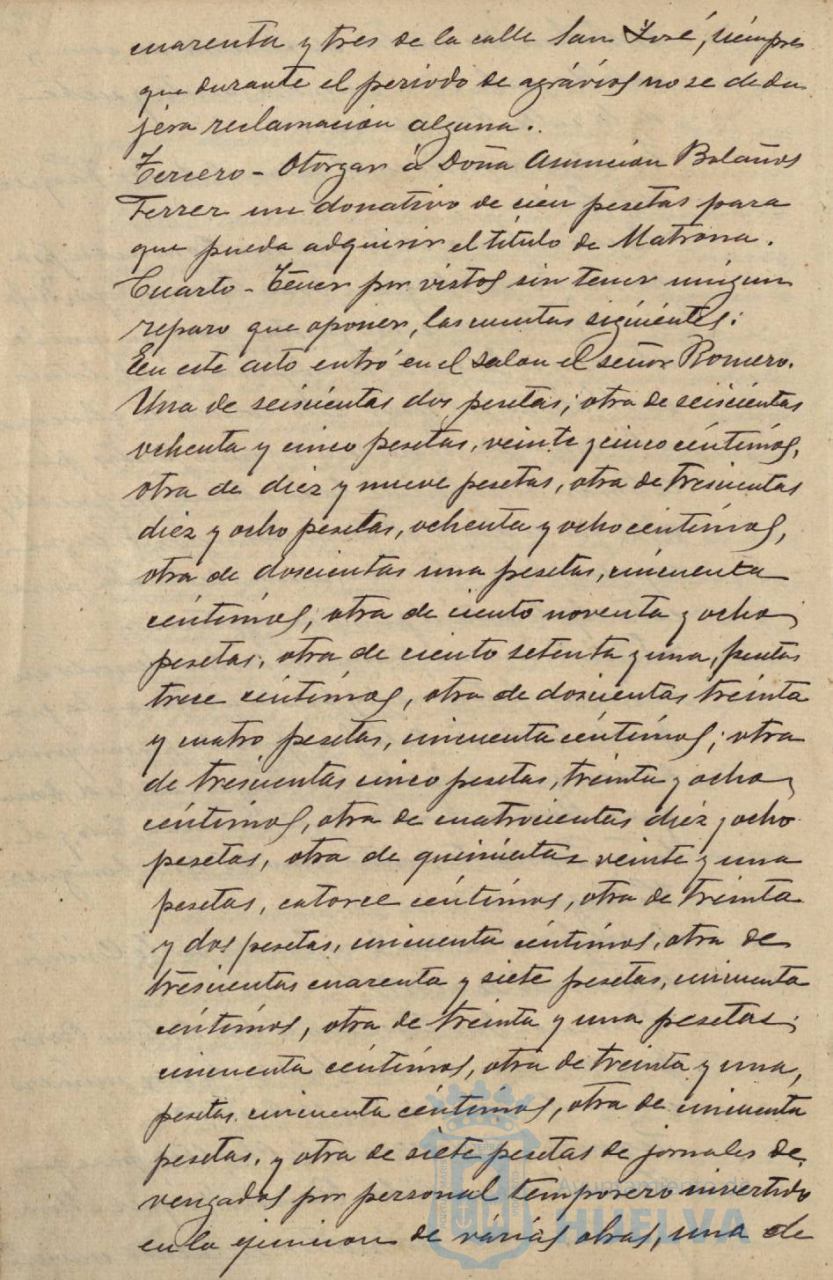 cuarenta y tres de la calle San José, siempre
que durante el periodo de agrávios no se dedu
jera reclamacion alguna.
Tercero - Otorgar á Doña Asuncion Bolaños
Ferrer un donativo de cien pesetas para
que pueda adquirir el título de Matrona.
Cuarto - Tener por vistos sin tener ningun
reparo que oponer, las cuentas siguientes:
En este acto entró en el salon el señor Romero.
Una de seiscientas dos pesetas; otra de seiscientas
ochenta y cinco pesetas, veinte y cinco céntimos,
otra de diez y nueve pesetas, otra de trescientas
diez y ocho pesetas, ochenta y ocho centimos,
otra de doscientas una pesetas, cincuenta
céntimos; otra de ciento noventa y ocho
pesetas; otra de ciento setenta y una, pesetas
trece céntimos, otra de doscientas treinta
y cuatro pesetas, cincuenta céntimos; otra
de trescientas cinco pesetas, treinta y ocho
céntimos, otra de cuatrocientas diez y ocho
pesetas, otra de quinientas veinte y una
pesetas, catorce céntimos, otra de treinta
y dos pesetas, cincuenta céntimos, otra de
trescientas cuarenta y siete pesetas, cincuenta
céntimos, otra de treinta y una pesetas;
cincuenta céntimos, otra de treinta y una,
pesetas cincuenta céntimos, otra de cincuenta
pesetas, y otra de siete pesetas de jornales de
vengados por personal temporero invertido
en la ejecucion de várias obras, una de
Ayuntamiento de
HUELVA